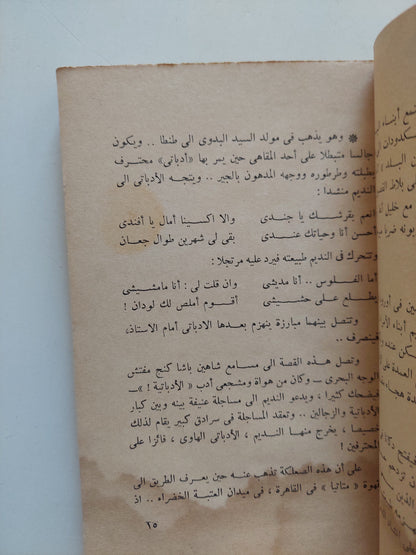 * وهو يذهب فى مولد السيد البدوى الى طنطا .. ويكون
جالسا متبطلا على أحد المقاهى حين يمر بها «أدباتى» محترف
بطبلته وطرطوره ووجهه المدهون بالجير .. ويتجه الأدباتى الى
النديم منشدا :
انعم بقرشك يا جندى والا اكسينا أمال يا أفندى
أحسن أنا وحياتك عندى بقى لى شهرين طوال جعان
وتتحرك فى النديم طبيعته فيرد عليه مرتجلا :
أما الفلوس .. أنا مديشى وان قلت لى : أنا مامشيشى
يطلع على حشيشى أقوم أملص لك لودان !
وتتصل بينهما مبارزة ينهزم بعدها الادباتى أمام الاستاذ،
فينصرف ..
وتصل هذه القصة الى مسامع شاهين باشا كنج مفتش
الوجه البحرى ــ وكان من هواة ومشجعى أدب « الأدباتية ! » ــ
فيضحك كثيرا ، ويدعو النديم الى مساجلة عنيفة بينه وبين كبار
الأدباتية والزجالين .. وتعقد المساجلة فى سرادق كبير يقام لذلك
خصيصا ، يخرج منها النديم ، الأدباتى الهاوى ، فائزا على
المحترفين !
على أن هذه الصعلكة تذهب عنه حين يعرف الطريق الى
قهوة « متاتيا » فى القاهرة ، فى ميدان العتبة الخضراء .. اذ
٢٥